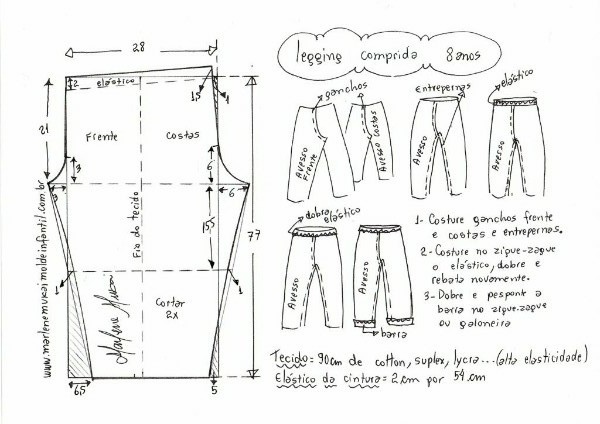 28
legging comprida 8 anos
2
elástico
1,5
1
21
Frente
Costas
3
6
3
6
Fio do tecido
15,5
77
1
1
Cortar
2x
Marlene Mukai
6,5
5
www.marlenemukaimoldeinfantil.com.br
ganchos
Avesso
Frente
Avesso Costas
Entrepernas
Avesso
elástico
Avesso
dobra
elástico
Avesso
Avesso
barra
1- Costure ganchos frente
e costas e entrepernas.
2- Costure no zigue-zague
o elástico, dobre e
rebata novamente.
3- Dobre e pesponte a
barra no zigue-zague
ou galoneira
Tecido = 90cm de cotton, suplex, lycra... (alta elasticidade)
Elástico da cintura = 2cm por 54cm